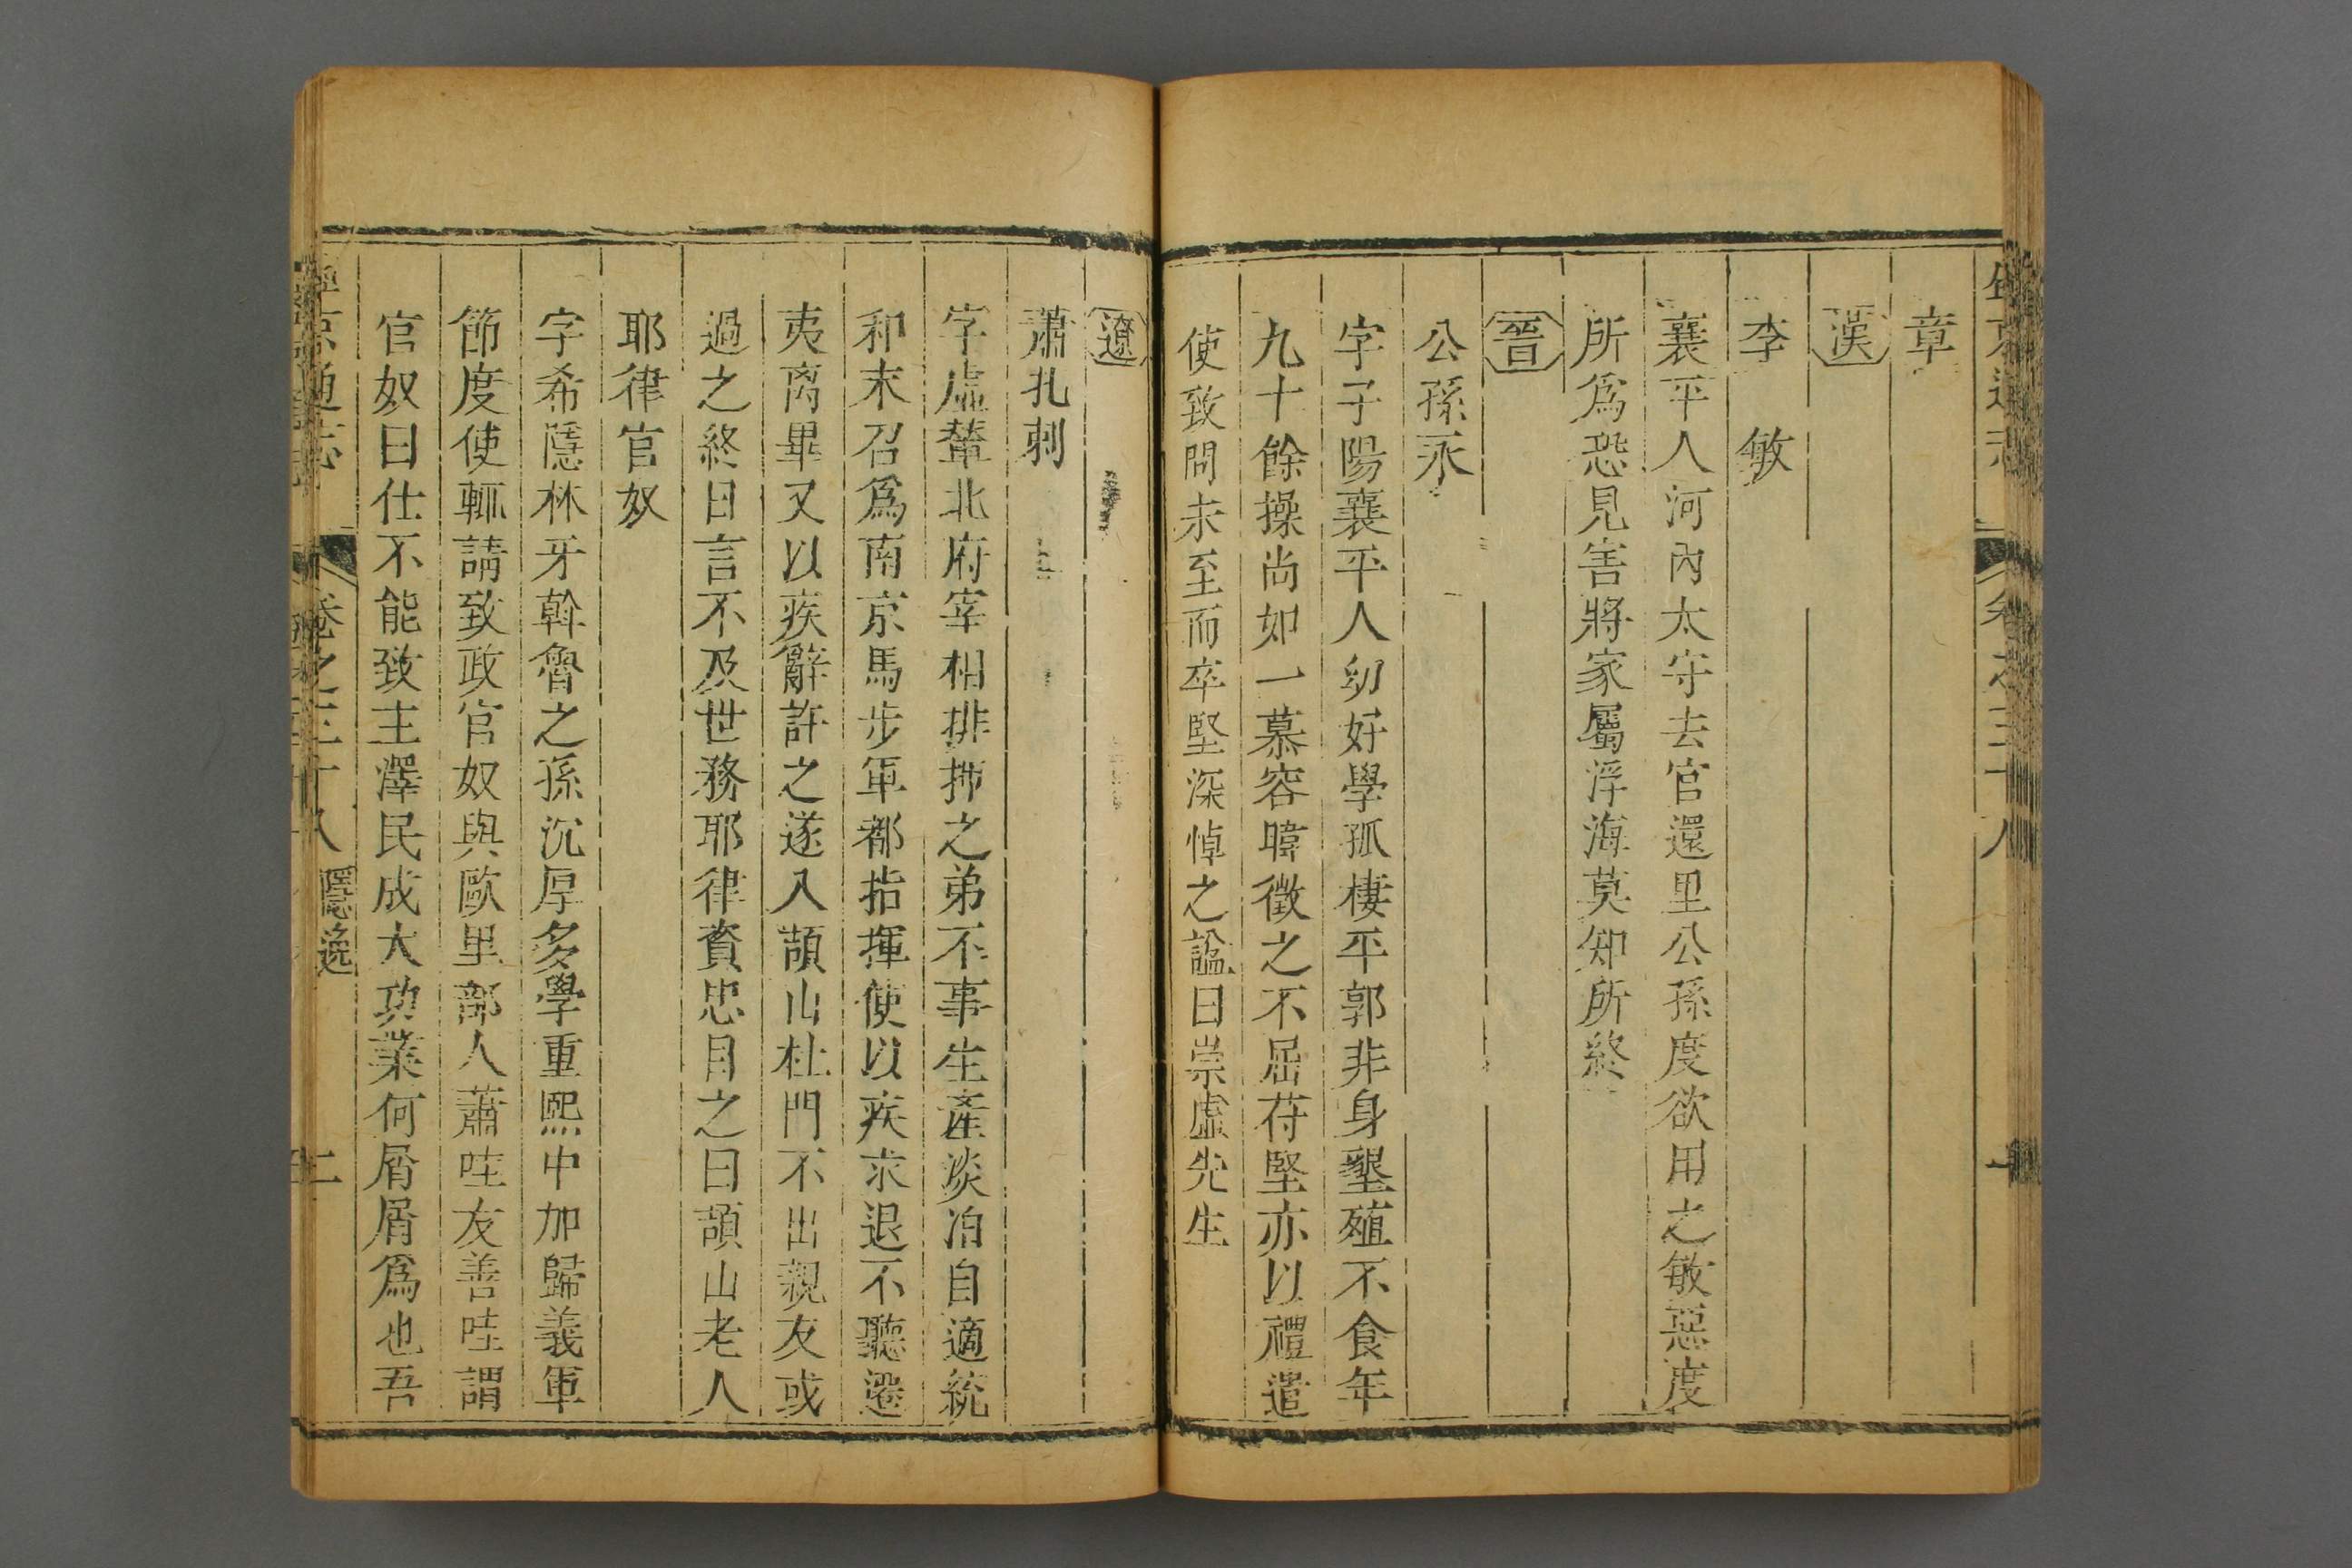 章
漢
李 敏
襄平人河內太守去官還里公孫度欲用之敏惡度
所爲恐見害將家屬浮海莫知所終
晉
公孫永
字子陽襄平人幼好學孤棲平郭非身墾殖不食年
九十餘操尚如一慕容暐徵之不屈苻堅亦以禮遣
使致問未至而卒堅深悼之諡曰崇虛先生
遼
蕭札剌
字虛輦北府宰相排押之弟不事生產淡泊自適統
和末召爲南京馬步軍都指揮使以疾求退不聽遷
夷离畢又以疾辭許之遂入頡山杜門不出親友或
過之終日言不及世務耶律資忠目之曰頡山老人
耶律官奴
字希隱林牙斡魯之孫沉厚多學重熙中加歸義軍
節度使輒請致政官奴與歐里部人蕭哇友善哇謂
官奴曰仕不能致主澤民成大功業何屑屑爲也吾
京通志 卷之三十八 隱逸 二